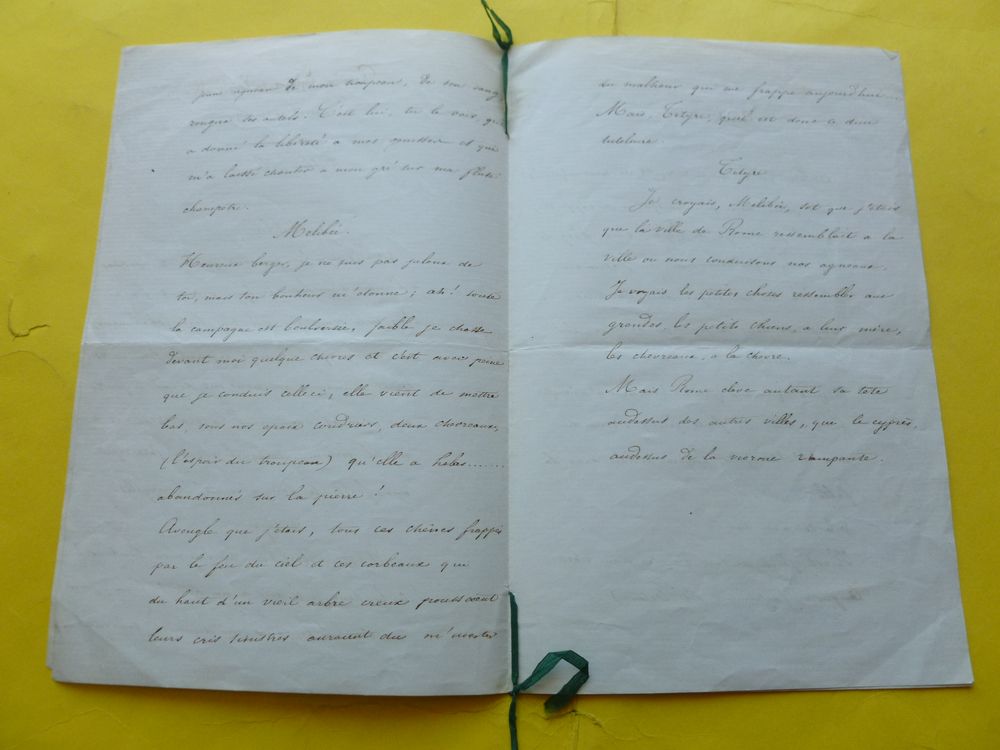 jeune agneau de mon troupeau, de son sang
rougira tes autels. C'est lui, tu le vois, qui
a donné la liberté a mes genisses et qui
m'a laissé chanter a mon gré sur ma flute
champêtre.
Melibée.
Heureux berger, je ne suis pas jaloux de
toi, mais ton bonheur m'étonne; ah! toute
la campagne est bouleversée, faible je chasse
devant moi quelque chevres et c'est avec peine
que je conduis celle ci, elle vient de mettre
bas, sous nos epais coudriers, deux chevreaux,
(l'espoir du troupeau) qu'elle a helas......
abandonnés sur la pierre!
Aveugle que j'étais, tous ces chênes frappés
par le feu du ciel et ces corbeaux qui
du haut d'un vieil arbre creux poussaient
leurs cris sinistres auraient du m'avertir
du malheur qui me frappe aujourd'hui...
Mais, Tityre, quel est donc ce dieu
tutelaire.
Tityre
Je croyais, Melibée, sot que j'étais
que la ville de Rome ressemblait a la
ville ou nous conduisons nos agneaux.
Je voyais les petites choses ressembler aux
grandes, les petits chiens, a leur mère,
les chevreaux, a la chevre.
Mais Rome eleve autant sa tete
audessus des autres villes, que le cyprès,
audessus de la viorne rampante.